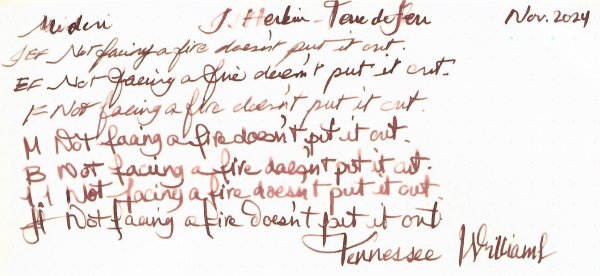 Midori J. Herbin - Terre de feu Nov. 2024
JEF Not facing a fire doesn't put it out.
EF Not facing a fire doesn't put it out.
F Not facing a fire doesn't put it out.
M Not facing a fire doesn't put it out.
B Not facing a fire doesn't put it out.
1.1 Not facing a fire doesn't put it out
Not facing a fire doesn't put it out
Tennessee Williams